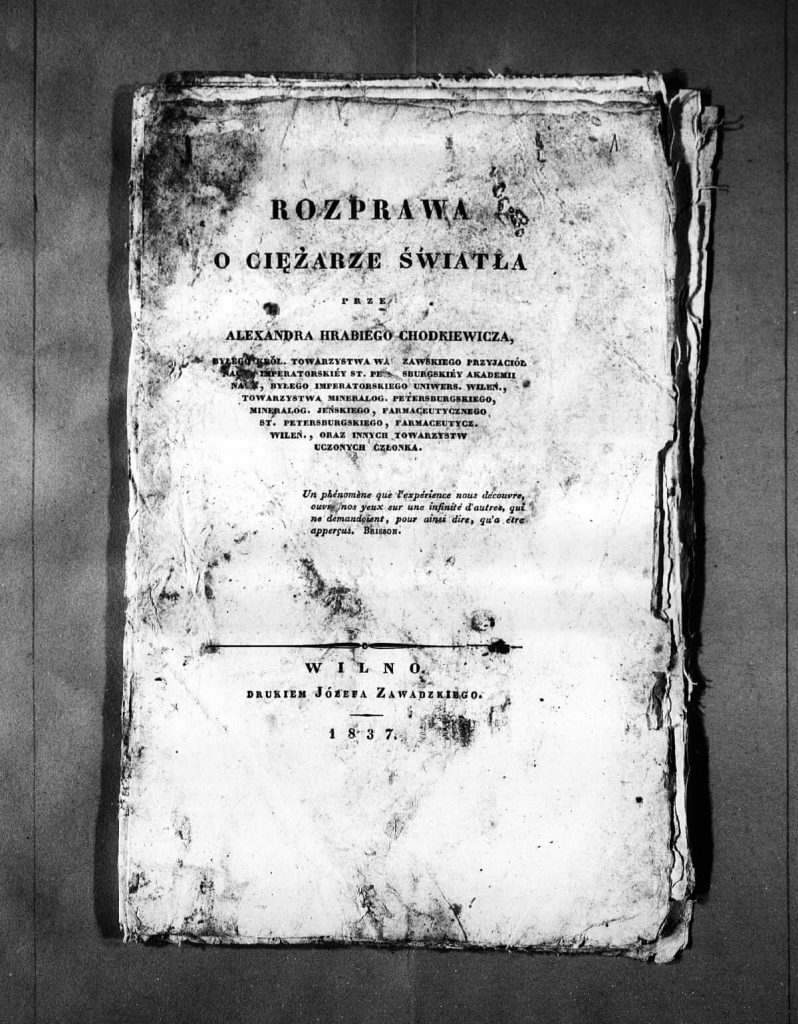 ROZPRAWA
O CIĘŻARZE ŚWIATŁA
PRZE
ALEXANDRA HRABIEGO CHODKIEWICZA,
BYŁEGO KRÓL. TOWARZYSTWA WA ZAWSKIEGO PRZYJACIÓŁ
NAUK, IMPERATORSKIÉY ST. PE SBURGSKIÉY AKADEMII
NAUK, BYŁEGO IMPERATORSKIEGO UNIWERS. WILEŃ.,
TOWARZYSTWA MINERALOG. PETERSBURGSKIEGO,
MINERALOG. JEŃSKIEGO, FARMACEUTYCZNEGO
ST. PETERSBURGSKIEGO, FARMACEUTYCZ.
WILEŃ., ORAZ INNYCH TOWARZYSTW
UCZONYCH CZŁONKA.
Un phénomène que l'expérience nous découvre,
ouvre nos yeux sur une infinité d'autres, qui
ne demandoient, pour ainsi dire, qu'a étre
apperçus. BRISSON.
WILNO.
DRUKIEM JÓZEFA ZAWADZKIEGO.
1837.